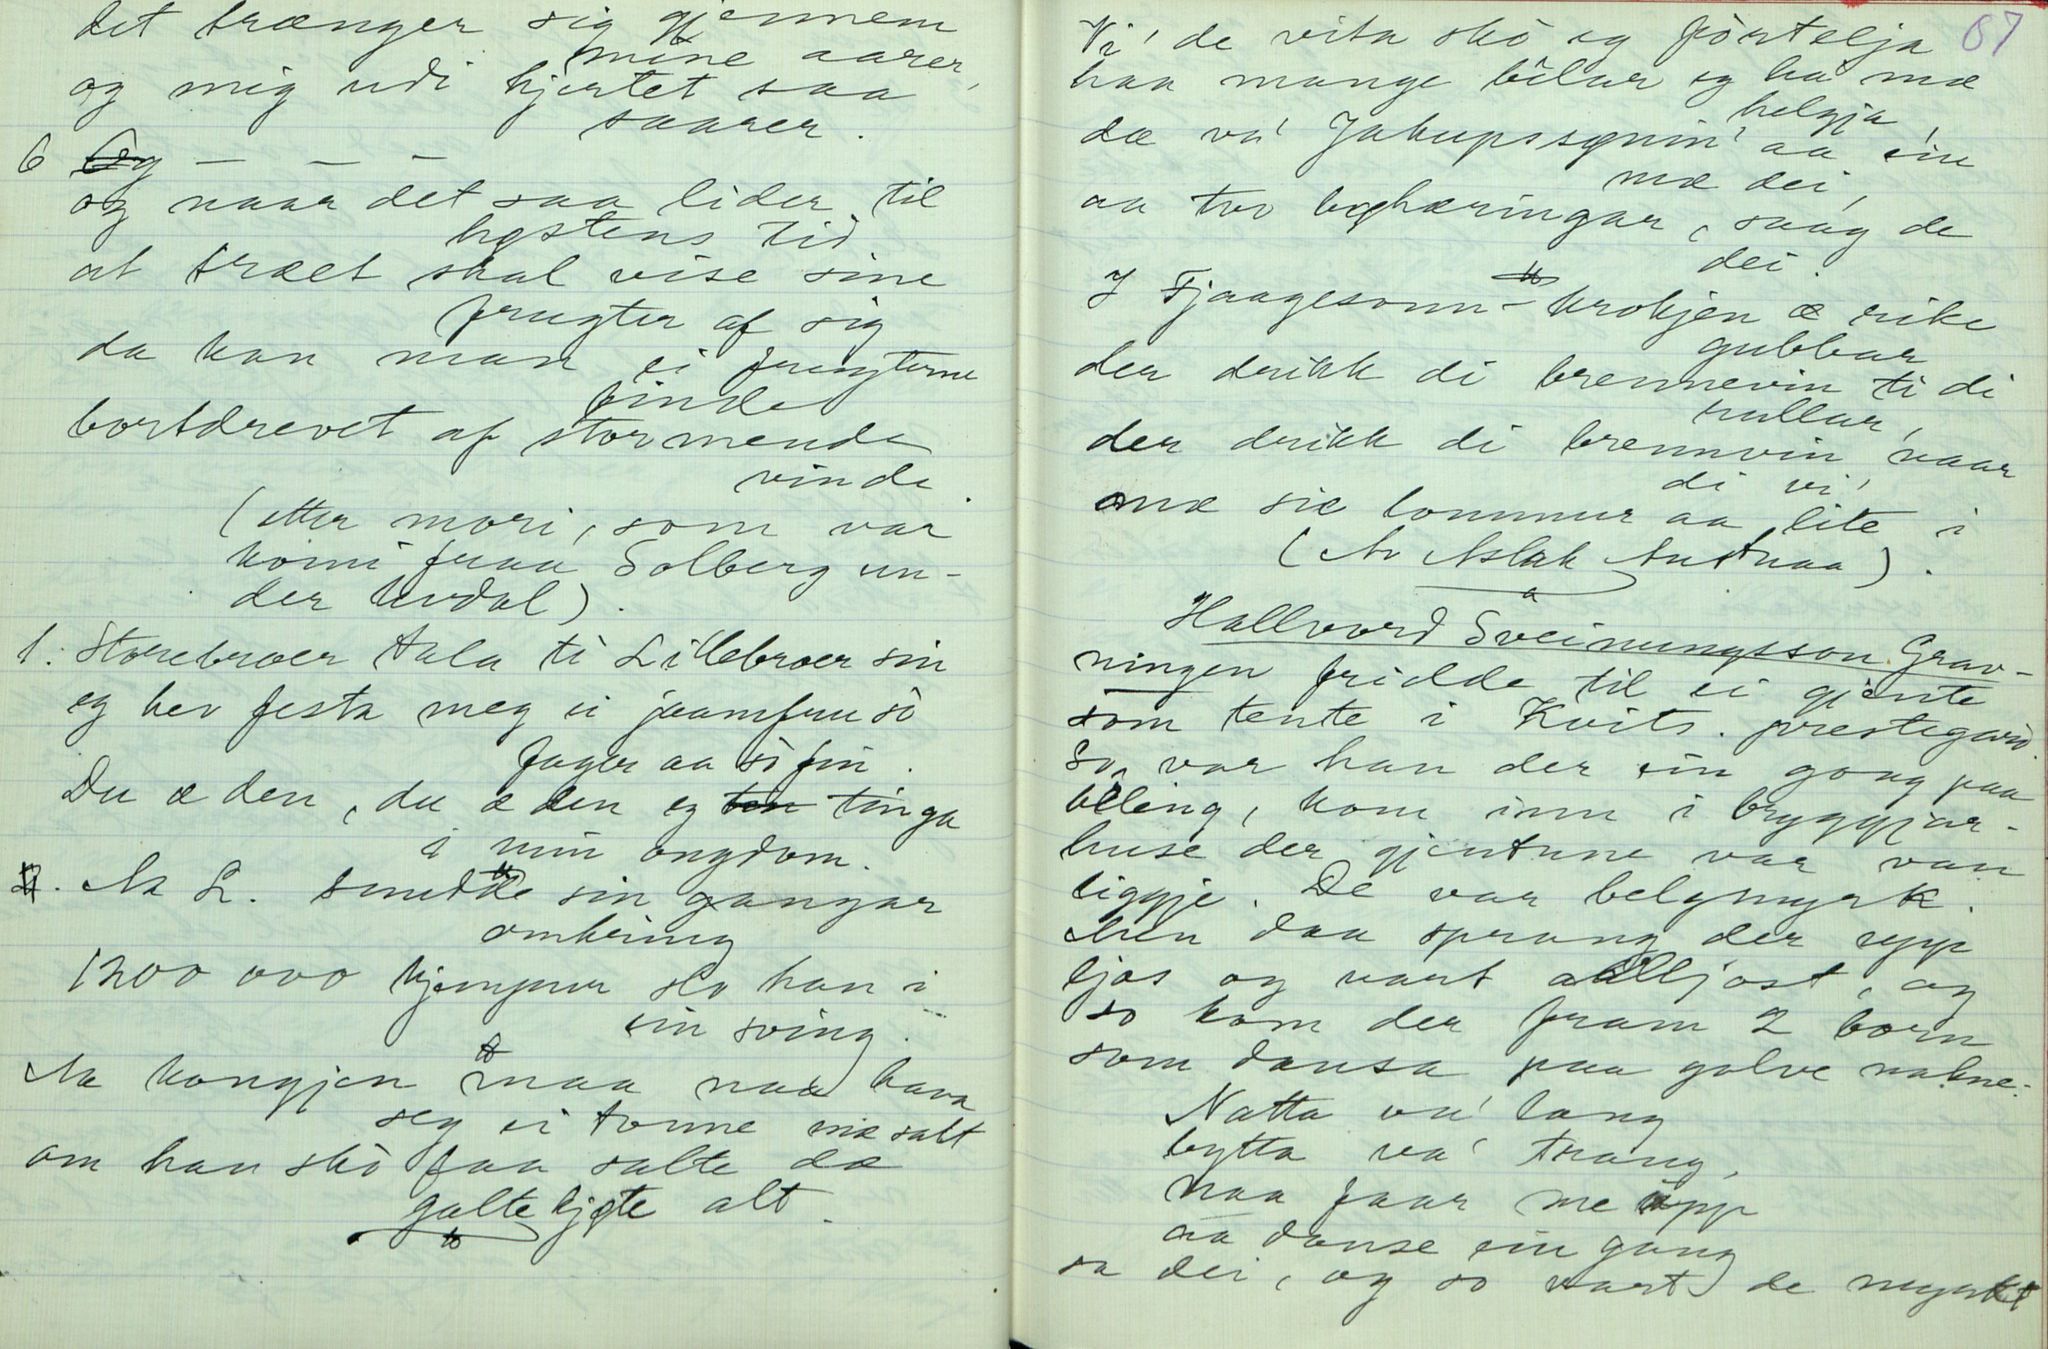 det trænger sig gjennem
mine aarer,
og mig udi hjertet saa
saarer.
6 Og — — —
og naar det saa lider til
høstens tid
at træet skal vise sine
frugter af sig
da kan man ei frugterne
finde
bortdrevet af stormende
vinde.
(etter mori, som var
komi fraa Solberg un-
der Uvdal).
1. Storebroer tala ti Lillebroer sin
eg hev festa meg ei jaamfru sò
fager aa sò fin.
Du æ den, du æ den eg ten tinga
i min ongdom.
Aa L. smedde sin gangar
omkring
1200 000 kjempur slo han i
ein sving.
Aa kongjen maa naa hava
seg ei tonne mæ salt
om han skò faa salte dæ
galtekjøte alt.
67
Vi' de vita skò eg förtelja
haa mange bilar eg ha mæ
helgja,
dæ va' Jakupssynin' aa ein
mæ dei,
aa tvo legkæringar, saag de
dei.
I Fjaagesonn-krokjen æ rike
gubbar
der drikk di brennevin ti di
rullar,
der drikk di brennvin naar
di vi'
mæ sie lommur aa lite i
(Av Aslak Austnaa).
Hallvord Sveinungsson Grav-
ningen fridde til ei gjente
som tente i Kvits. prestegard.
So var han der ein gong paa
beling, kom inn i bryggjar-
huse der gjentune var van
liggje. De var belgmyrk.
Men daa sprang der upp
ljos og vart allljost, og
so kom der fram 2 born
som dansa paa golve nakne.
Natta va' lang
bytta va' trang,
naa faar me upp
aa danse ein gang
sa dei, og so vart de myrkt